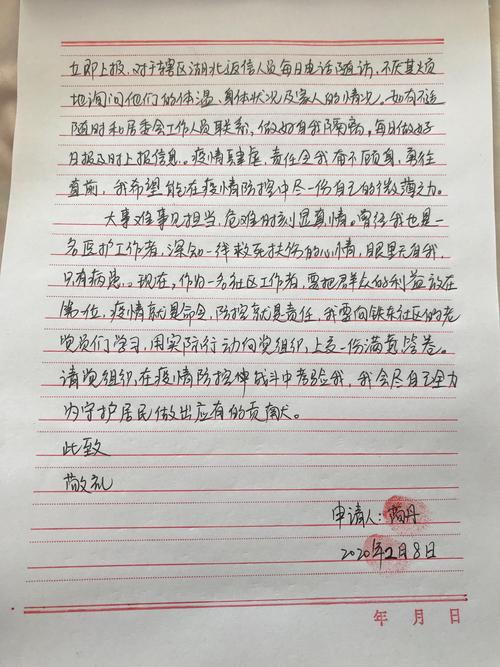 立即上报，对于辖区湖北返信人员每日电话随访，不厌其烦
地询问他们的体温、身体状况及家人的情况。如有不适
随时和居委会工作人员联系，做好自我隔离，每日做好
日报及时上报信息。疫情肆虐，责任令我奋不顾身，勇往
直前，我希望能在疫情防控中尽一份自己的微薄之力。
大事难事见担当，危难时刻显真情。曾经我也是一
名医护工作者，深知一线救死扶伤的心情，眼里无自我，
只有病患。现在，作为一名社区工作者，要把群众的利益放在
第一位，疫情就是命令，防控就是责任，我要向铁东社区的老
党员们学习，用实际行动向党组织，上交一份满意答卷。
请党组织，在疫情防控伸战斗中考验我，我会尽自己全力
为守护居民做出应有的贡献。
此致
敬礼
申请人：丹
2020年2月8日
年 月 日